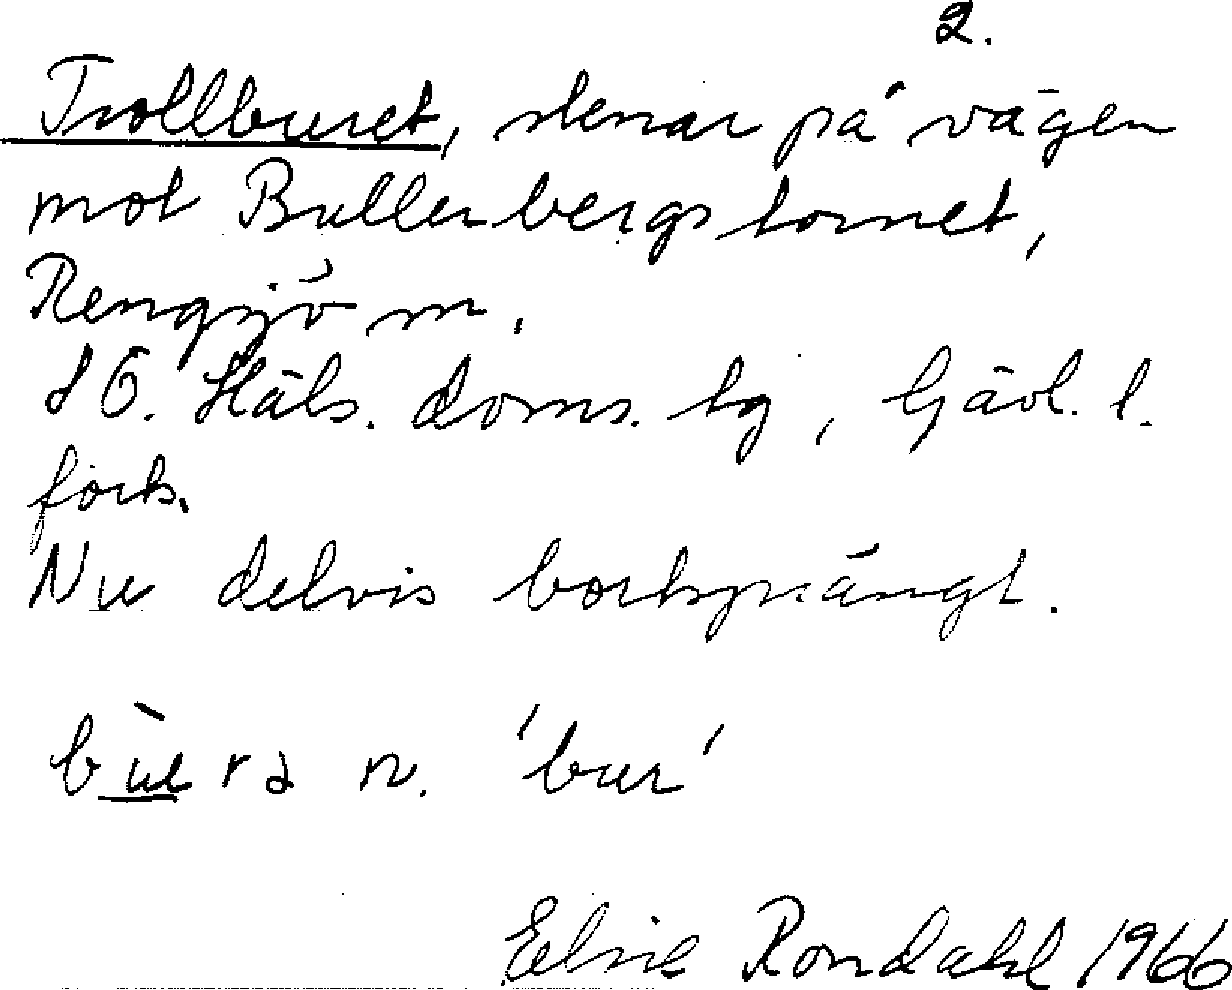 2.
Trollburet, stenar på vägen
mot Bullerbergstornet,
Rengsjö sn.
SÖ. Häls. doms. hg, Gävl. l.
forts.
Nu delvis bortsprängt.
bùrə n. 'bur'
Elsie Rondahl 1966